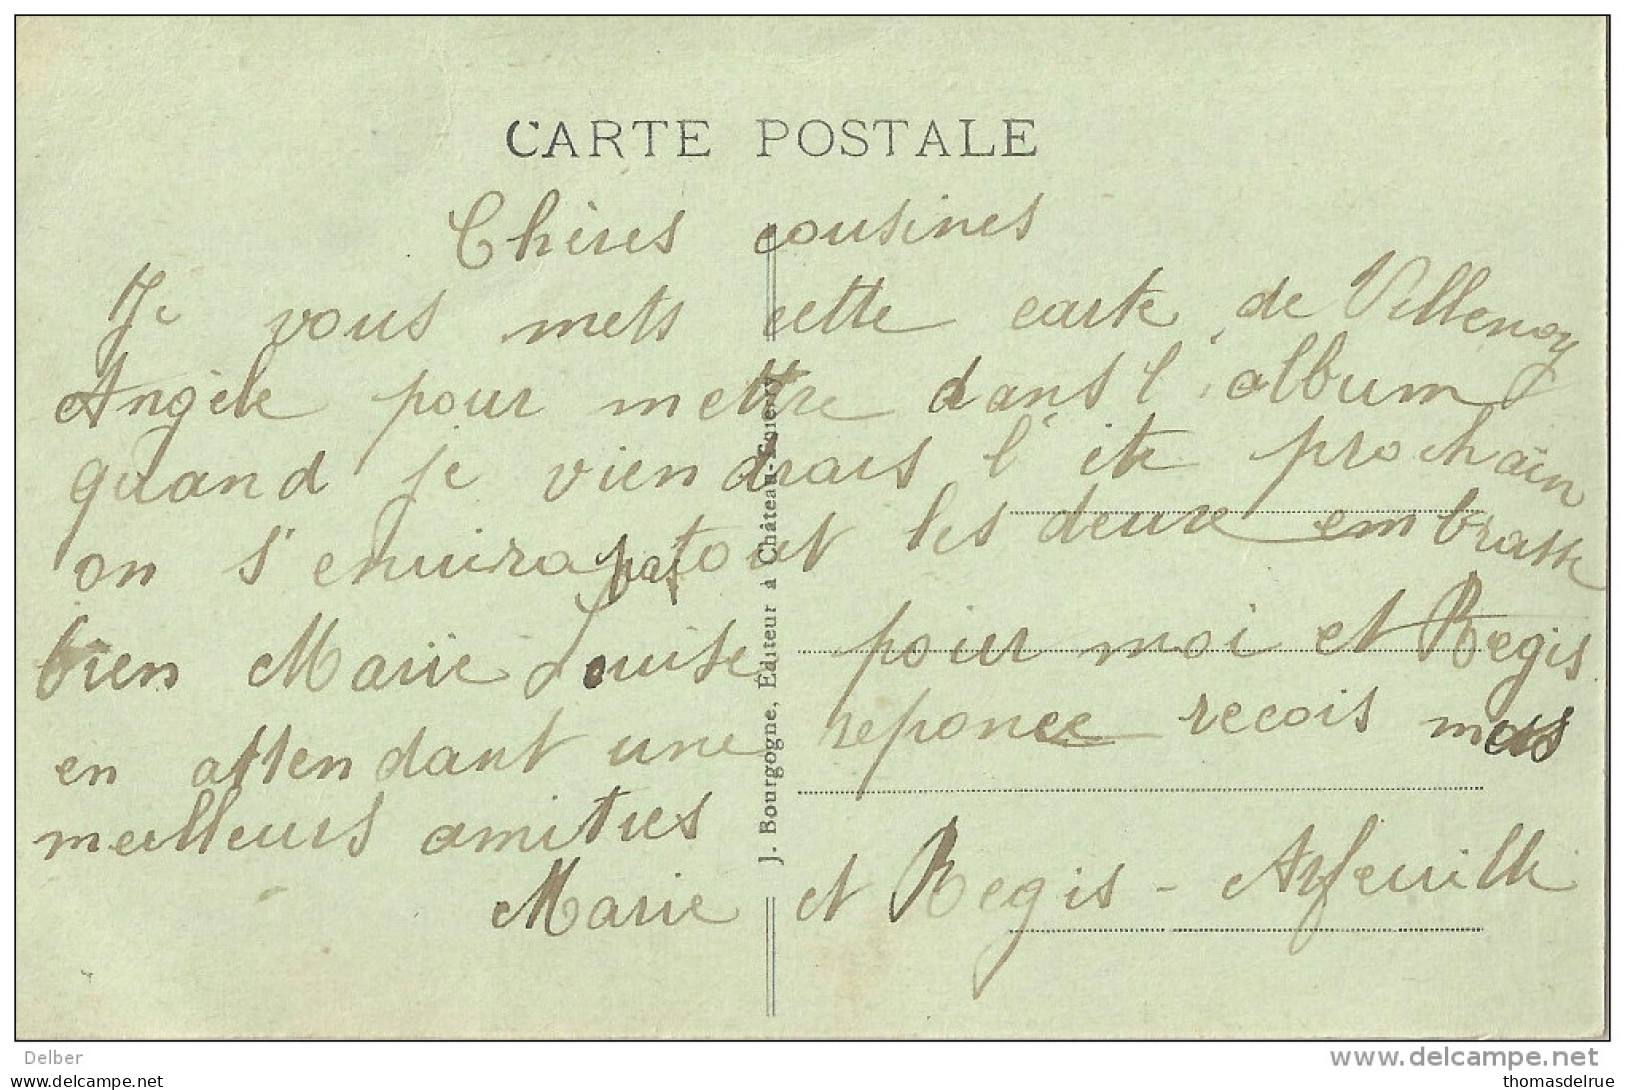 CARTE POSTALE
Chères cousines
Je vous mets cette carte de Villenoy
Angèle pour mettre dans l'album
quand je viendrais l'été prochain
on s'enuira pas tout les deux embrasse
bien Marie Louise pour moi et Regis
en attendant une reponce recois mes
meilleurs amities
Marie et Regis - Arfeuille
J. Bourgogne, Editeur à Château-Thierry
Delber
www.delcampe.net
thomasdelrue